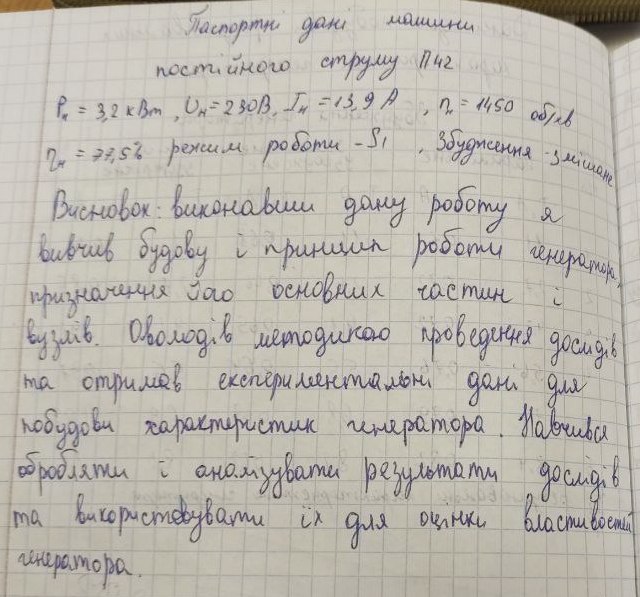 Паспортні дані машини
постійного струму П42
Pн = 3,2 кВт, Uн = 230В, Iн = 13,9 А, nн = 1450 об/хв
ηн = 77,5% режим роботи - S1, Збудження - змішане
Висновок: виконавши дану роботу я
вивчив будову і принцип роботи генератора,
призначення його основних частин і
вузлів. Оволодів методикою проведення дослідів
та отримав експериментальні дані для
побудови характеристик генератора. Навчився
обробляти і аналізувати результати дослідів
та використовувати їх для оцінки властивостей
генератора.